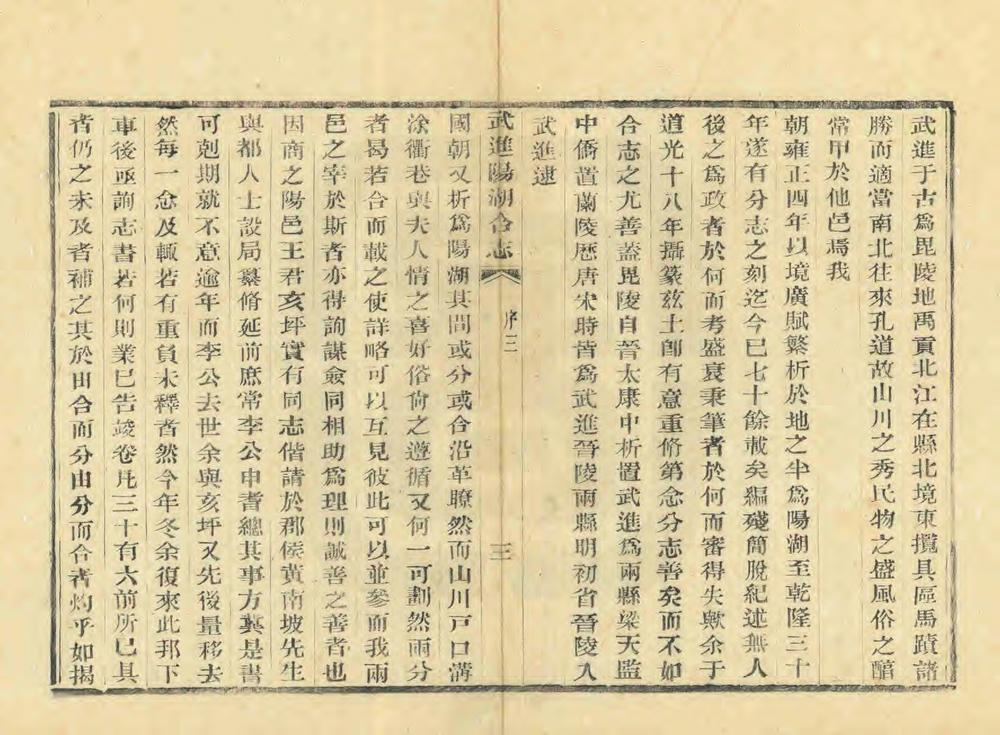 武進于古爲毘陵地禹貢北江在縣北境東攬具區馬蹟諸
勝而適當南北往來孔道故山川之秀民物之盛風俗之醇
常甲於他邑焉我
朝雍正四年以境廣賦繁析於地之半爲陽湖至乾隆三十
年遂有分志之刻迄今已七十餘載矣編殘簡脫紀述無人
後之爲政者於何而考盛衰秉筆者於何而審得失歟余于
道光十八年攝篆茲土卽有意重脩第念分志善矣而不如
合志之尤善蓋毘陵自晉太康中析置武進爲兩縣梁天監
中僑置蘭陵歷唐宋時皆爲武進晉陵兩縣明初省晉陵入
武進逮
武進陽湖合志 序三 三
國朝又析爲陽湖其間或分或合沿革瞭然而山川戸口溝
涂衢巷與夫人情之喜好俗尙之遵循又何一可劃然兩分
者曷若合而載之使詳略可以互見彼此可以並參而我兩
邑之宰於斯者亦得詢謀僉同相助爲理則誠善之善者也
因商之陽邑王君亥坪實有同志偕請於郡侯黃南坡先生
與都人士設局纂脩延前庶常李公申耆總其事方冀是書
可剋期就不意逾年而李公去世余與亥坪又先後量移去
然每一念及輒若有重負未釋者然今年冬余復來此邦下
車後亟詢志書若何則業已告竣卷凡三十有六前所已具
者仍之未及者補之其於由合而分由分而合者灼乎如揭